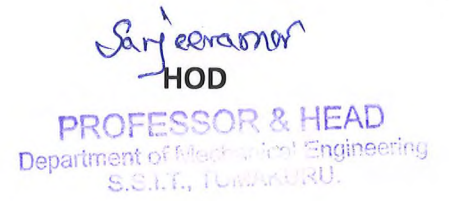 HOD
PROFESSOR & HEAD
Department of Mechanical Engineering
S.S.I.T., TUMAKURU.